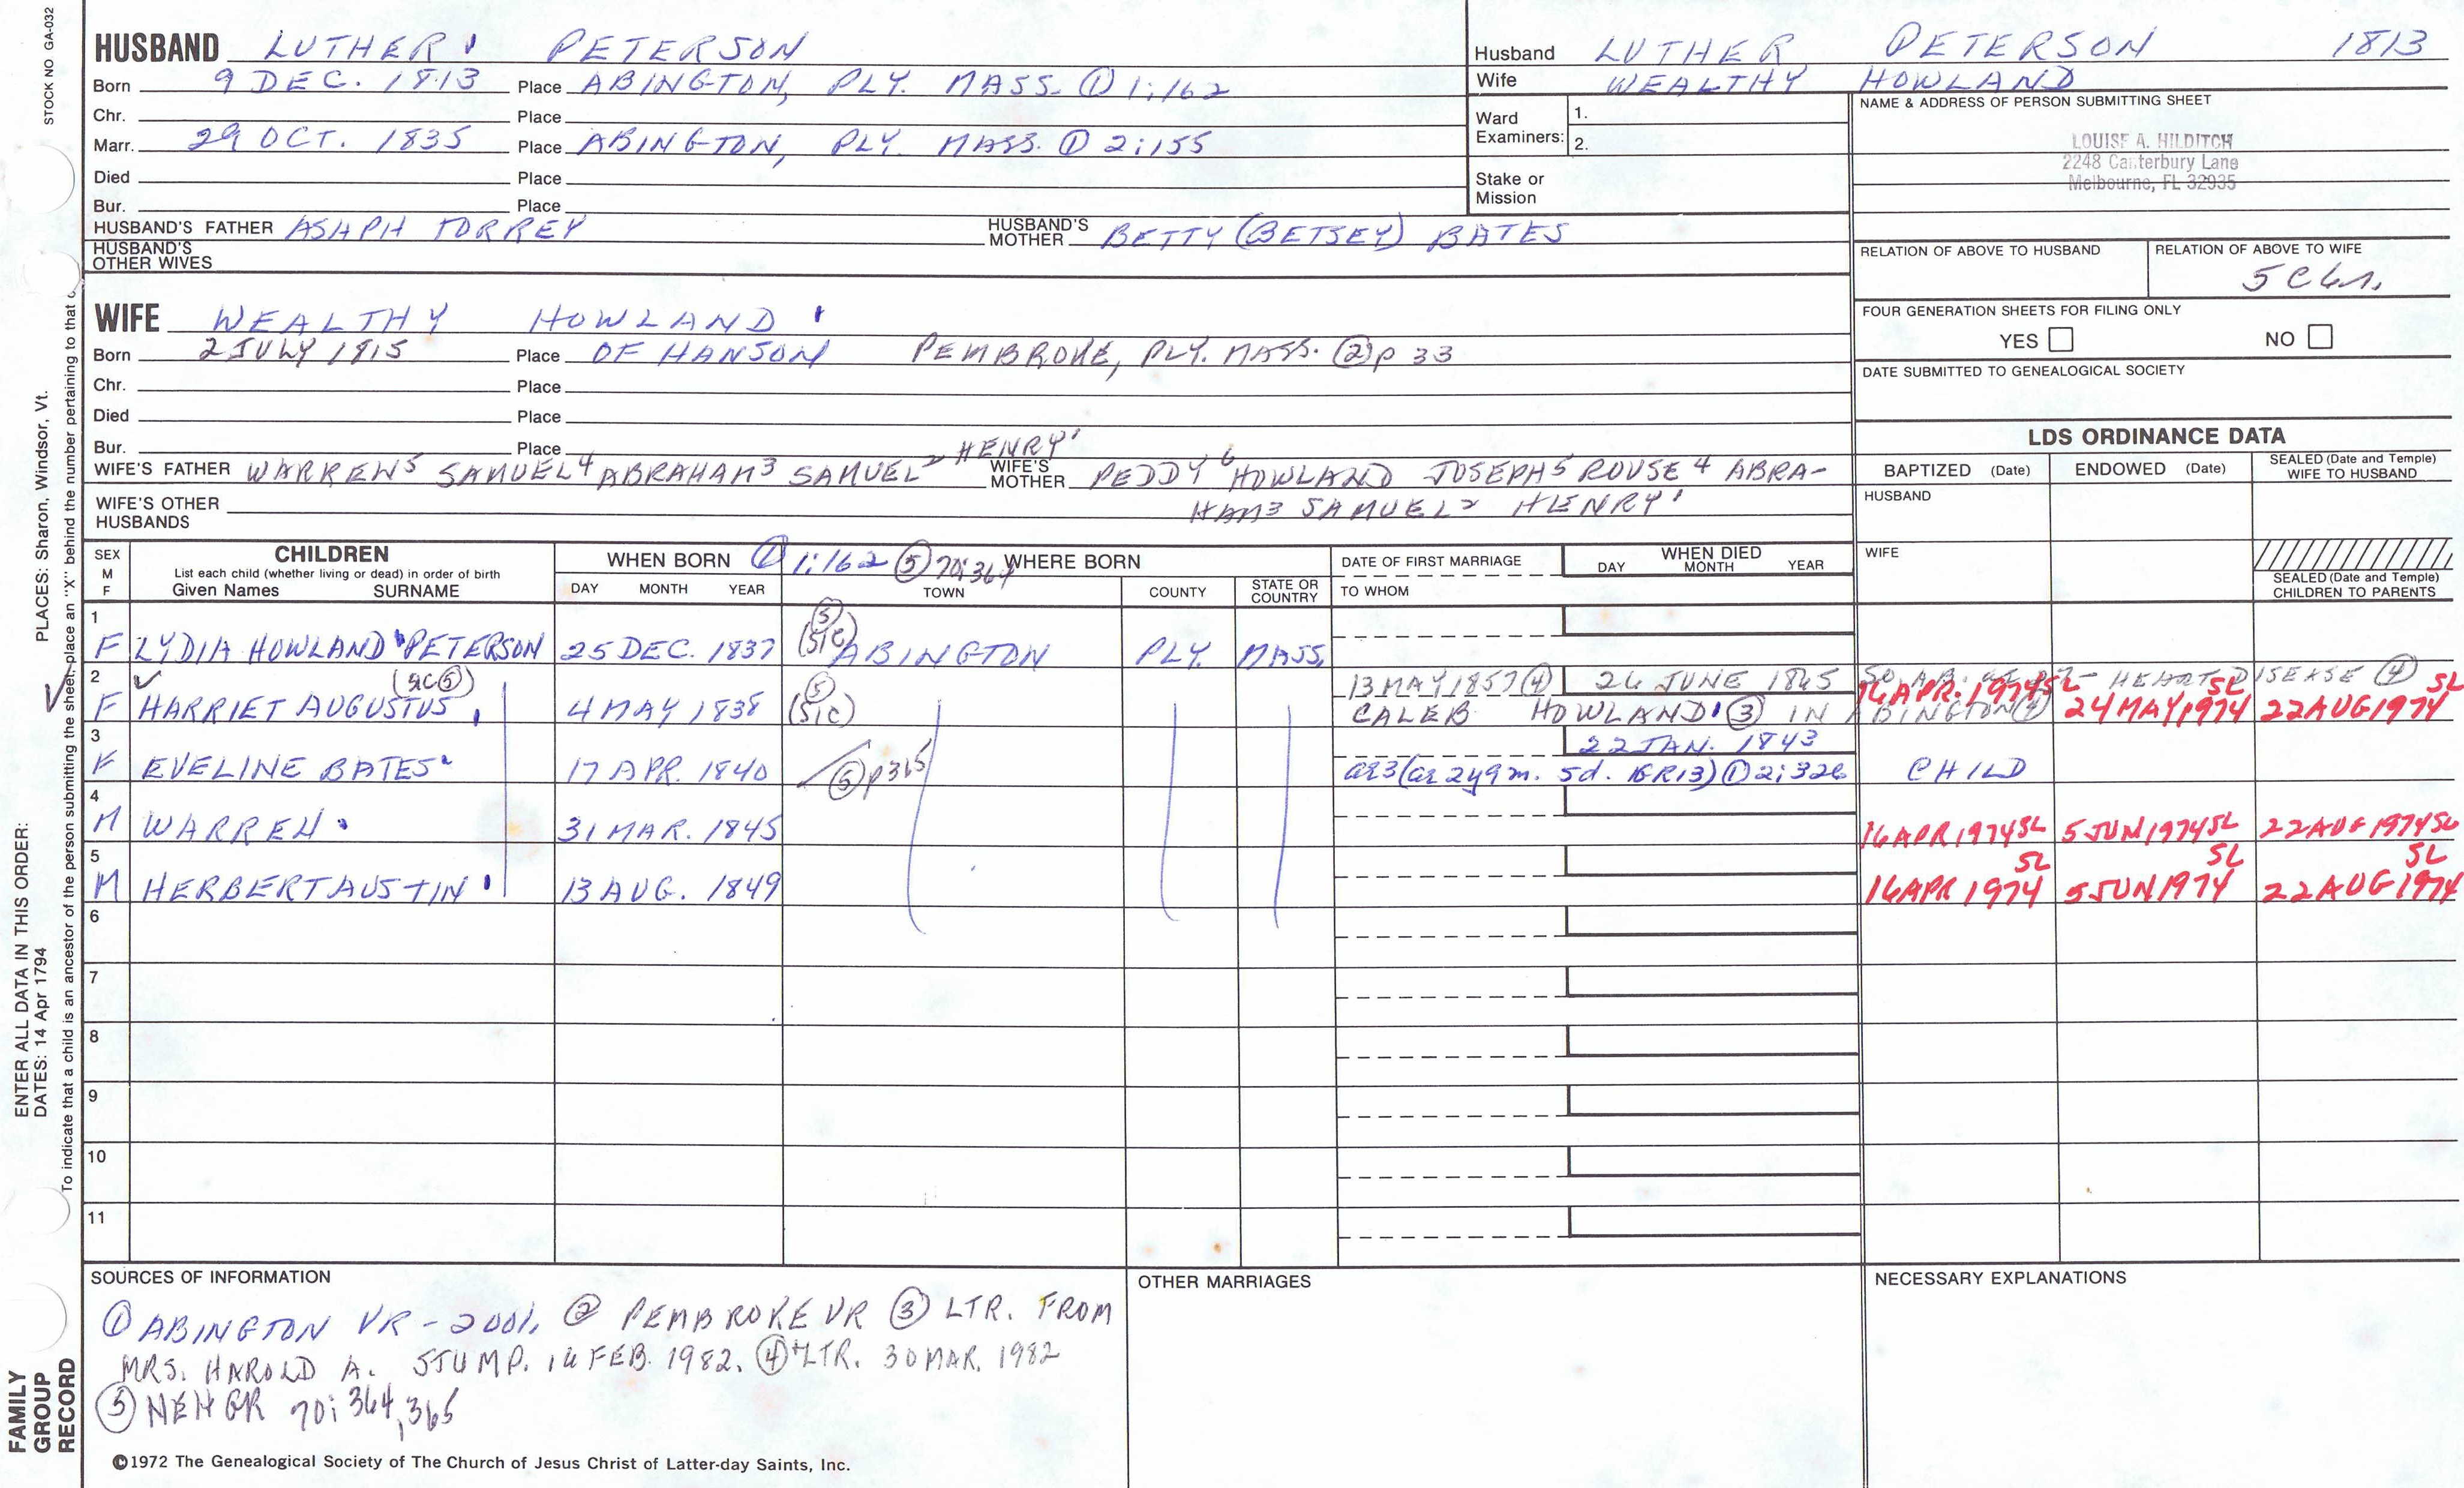 STOCK NO GA-032
HUSBAND LUTHER PETERSON
Born 9 DEC. 1813 Place ABINGTON, PLY. MASS. ① 1:162
Chr. Place
Marr. 29 OCT. 1835 Place ABINGTON, PLY. MASS. ① 2:155
Died Place
Bur. Place
HUSBAND'S FATHER ASAPH TORREY HUSBAND'S MOTHER BETTY (BETSEY) BATES
HUSBAND'S OTHER WIVES
Husband LUTHER PETERSON 1813
Wife WEALTHY HOWLAND
Ward Examiners: 1.
2.
Stake or Mission
NAME & ADDRESS OF PERSON SUBMITTING SHEET
LOUISE A. HILDITCH
2248 Canterbury Lane
Melbourne, FL 32935
RELATION OF ABOVE TO HUSBAND RELATION OF ABOVE TO WIFE
FOUR GENERATION SHEETS FOR FILING ONLY
YES NO
DATE SUBMITTED TO GENEALOGICAL SOCIETY
WIFE WEALTHY HOWLAND
Born 2 JULY 1815 Place OF HANSON PEMBROKE, PLY. MASS. ② p 33
Chr. Place
Died Place
Bur. Place
WIFE'S FATHER WARREN5 SAMUEL4 ABRAHAM3 SAMUEL2 HENRY1 WIFE'S MOTHER PEDDY6 HOWLAND JOSEPH5 ROUSE4 ABRA-
HAM3 SAMUEL2 HENRY1
WIFE'S OTHER HUSBANDS
LDS ORDINANCE DATA
BAPTIZED (Date) ENDOWED (Date) SEALED (Date and Temple) WIFE TO HUSBAND
HUSBAND
WIFE
SEALED (Date and Temple) CHILDREN TO PARENTS
SEX M F CHILDREN
List each child (whether living or dead) in order of birth
Given Names SURNAME
WHEN BORN ① 1:162 ⑤ 70:364 WHERE BORN
DAY MONTH YEAR TOWN COUNTY STATE OR COUNTRY
DATE OF FIRST MARRIAGE TO WHOM
WHEN DIED DAY MONTH YEAR
1 F LYDIA HOWLAND PETERSON 25 DEC. 1837 ⑤ (SIC) ABINGTON PLY. MASS.
2 F HARRIET AUGUSTUS (SIC ⑤) 4 MAY 1838 ⑤ (SIC) 13 MAY 1857 ④ 26 JUNE 1865 HEART DISEASE ④
CALEB HOWLAND ③ IN ABINGTON ④ 16 APR. 1974 SL 24 MAY 1974 SL 22 AUG 1974 SL
3 F EVELINE BATES 17 APR. 1840 ⑤ p 365 22 JAN. 1843
ae 3 (ae 2y 9m. 5d. GR13) ① 2:326 CHILD
4 M WARREN 31 MAR. 1845 16 APR 1974 SL 5 JUN 1974 SL 22 AUG 1974 SL
5 M HERBERT AUSTIN 13 AUG. 1849 16 APR 1974 SL 5 JUN 1974 SL 22 AUG 1974 SL
6
7
8
9
10
11
SOURCES OF INFORMATION
① ABINGTON VR - 2001, ② PEMBROKE VR ③ LTR. FROM
MRS. HAROLD A. STUMP. 16 FEB. 1982. ④ LTR. 30 MAR. 1982
⑤ NEHGR 70: 364, 365
©1972 The Genealogical Society of The Church of Jesus Christ of Latter-day Saints, Inc.
OTHER MARRIAGES
NECESSARY EXPLANATIONS
ENTER ALL DATA IN THIS ORDER:
DATES: 14 Apr 1794 PLACES: Sharon, Windsor, Vt.
To indicate that a child is an ancestor of the person submitting the sheet, place an "X" behind the number pertaining to that
FAMILY GROUP RECORD